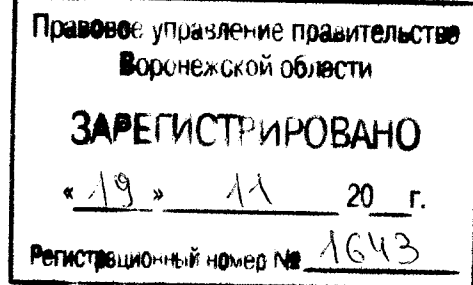 Правовое управление правительства
Воронежской области
ЗАРЕГИСТРИРОВАНО
« 19 » 11 20__г.
Регистрационный номер № 1643